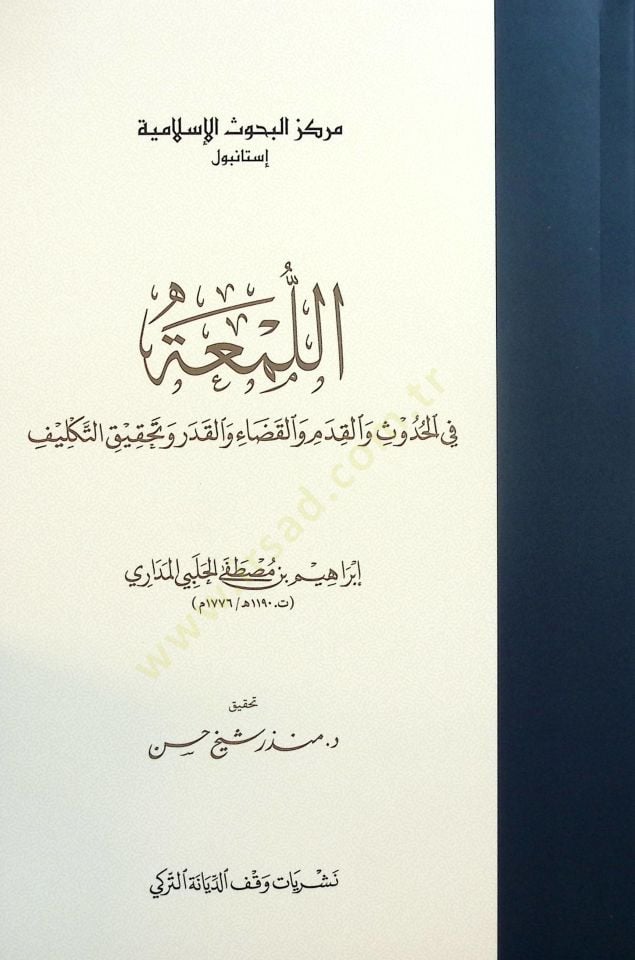 مركز البحوث الإسلامية
إستانبول
اللُّمْعَةُ
في الحُدُوْثِ وَالقِدَمِ وَالقَضَاءِ وَالقَدَرِ وَتَحْقِيْقِ التَّكْلِيْفِ
إبْرَاهِيْم بن مُصْطَفَى الحَلَبِي المَدَارِي
(ت. ١١٩٠هـ/ ١٧٧٦م)
تحقيق
د. منذر شيخ حسن
نَشْرِيَات وَقْف الدِّيَانَة التركي